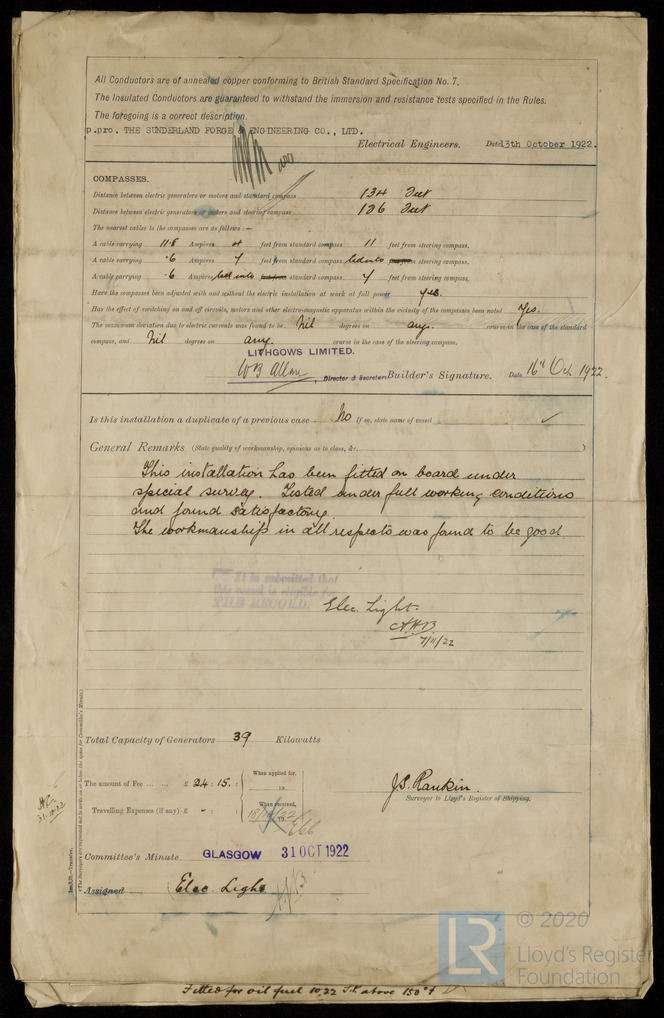 All Conductors are of annealed copper conforming to British Standard Specification No. 7.
The Insulated Conductors are guaranteed to withstand the immersion and resistance tests specified in the Rules.
The foregoing is a correct description.
p.pro. THE SUNDERLAND FORGE & ENGINEERING CO., LTD.
Electrical Engineers. Date 13th October 1922.
COMPASSES.
Distance between electric generators or motors and standard compass 134 feet
Distance between electric generators or motors and steering compass 126 feet
The nearest cables to the compasses are as follows :—
A cable carrying 11.8 Ampères feet from standard compass 11 feet from steering compass.
A cable carrying .6 Ampères 7 feet from standard compass led into steering compass.
A cable carrying .6 Ampères led into standard compass 7 feet from steering compass.
Have the compasses been adjusted with and without the electric installation at work at full power yes.
Has the effect of switching on and off circuits, motors and other electro-magnetic apparatus within the vicinity of the compasses been noted Yes.
The maximum deviation due to electric currents was found to be Nil degrees on any course in the case of the standard
compass, and Nil degrees on any course in the case of the steering compass.
LITHGOWS LIMITED.
Director & Secretary Builder's Signature. Date 16th Oct 1922.
Is this installation a duplicate of a previous case No If so, state name of vessel
General Remarks (State quality of workmanship, opinions as to class, &c. )
This installation has been fitted on board under
special survey. Tested under full working conditions
and found satisfactory.
The workmanship in all respects was found to be good
It is submitted that
this vessel is eligible for
THE RECORD. Elec. Light.
7/11/22
Total Capacity of Generators 39 Kilowatts
The amount of Fee ... ... £ 24 : 15 : When applied for,
19
J.S. Rankin.
Surveyor to Lloyd's Register of Shipping.
Travelling Expenses (if any) £ - : When received,
31.10.22
Committee's Minute GLASGOW 31 OCT 1922
Assigned Elec. Light
© 2020
LR
Lloyd's Register
Foundation
Fitted for oil fuel 10.22 F.P. above 150°F